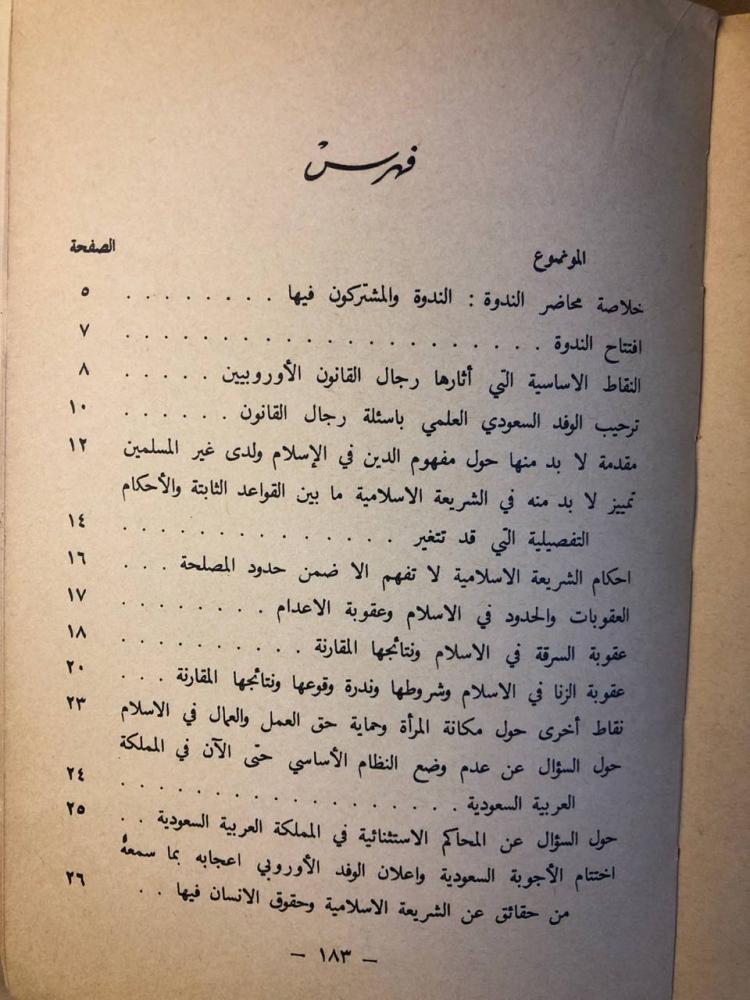 فهرس
الموضوع الصفحة
خلاصة محاضر الندوة : الندوة والمشتركون فيها . . . . . . . . ٥
افتتاح الندوة . . . . . . . . . . . . . . . . . . . . ٧
النقاط الاساسية التّي أثارها رجال القانون الأوروبيين . . . . . ٨
ترحيب الوفد السعودي العلمي باسئلة رجال القانون . . . . . . ١٠
مقدمة لا بد منها حول مفهوم الدين في الإسلام ولدى غير المسلمين ١٢
تمييز لا بد منه في الشريعة الاسلامية ما بين القواعد الثابتة والأحكام
التفصيلية التّي قد تتغير . . . . . . . . . . . . . . ١٤
احكام الشريعة الاسلامية لا تفهم الا ضمن حدود المصلحة . . . ١٦
العقوبات والحدود في الاسلام وعقوبة الاعدام . . . . . . . . ١٧
عقوبة السرقة في الاسلام ونتائجها المقارنة . . . . . . . . . . ١٨
عقوبة الزنا في الاسلام وشروطها وندرة وقوعها ونتائجها المقارنة . . . ٢٠
نقاط أخرى حول مكانة المرأة وحماية حق العمل والعمال في الاسلام ٢٣
حول السؤال عن عدم وضع النظام الأساسي حتّى الآن في المملكة
العربية السعودية . . . . . . . . . . . . . . . . . . ٢٤
حول السؤال عن المحاكم الاستثنائية في المملكة العربية السعودية . . ٢٥
اختتام الأجوبة السعودية واعلان الوفد الأوروبي اعجابه بما سمعهُ
من حقائق عن الشريعة الاسلامية وحقوق الانسان فيها . . ٢٦
— ١٨٣ —